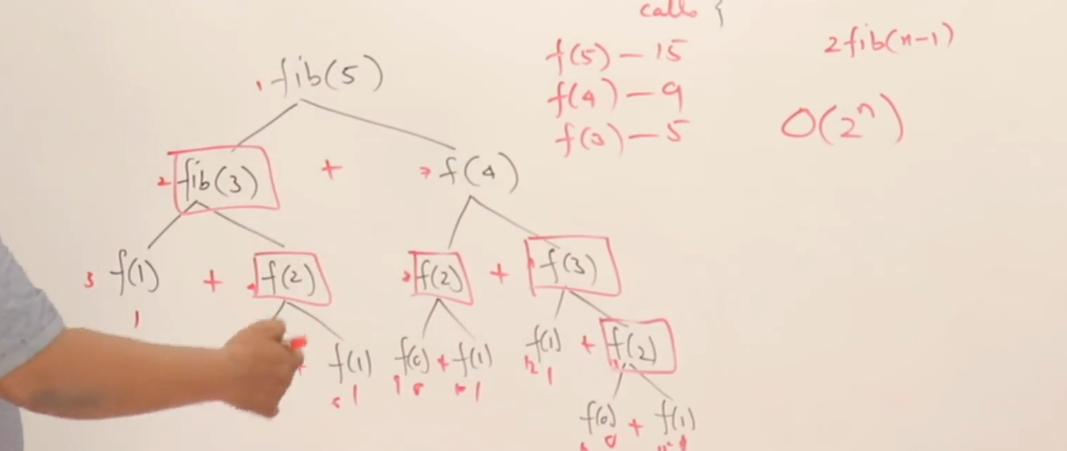 calls {
f(5) — 15
f(4) — 9
f(3) — 5
2fib(n-1)
O(2ⁿ)
1 fib(5)
2 fib(3) + f(4)
3 f(1) + f(2) f(2) + f(3)
1
f(1) f(0) + f(1) f(1) + f(2)
1 1
f(0) + f(1)
0